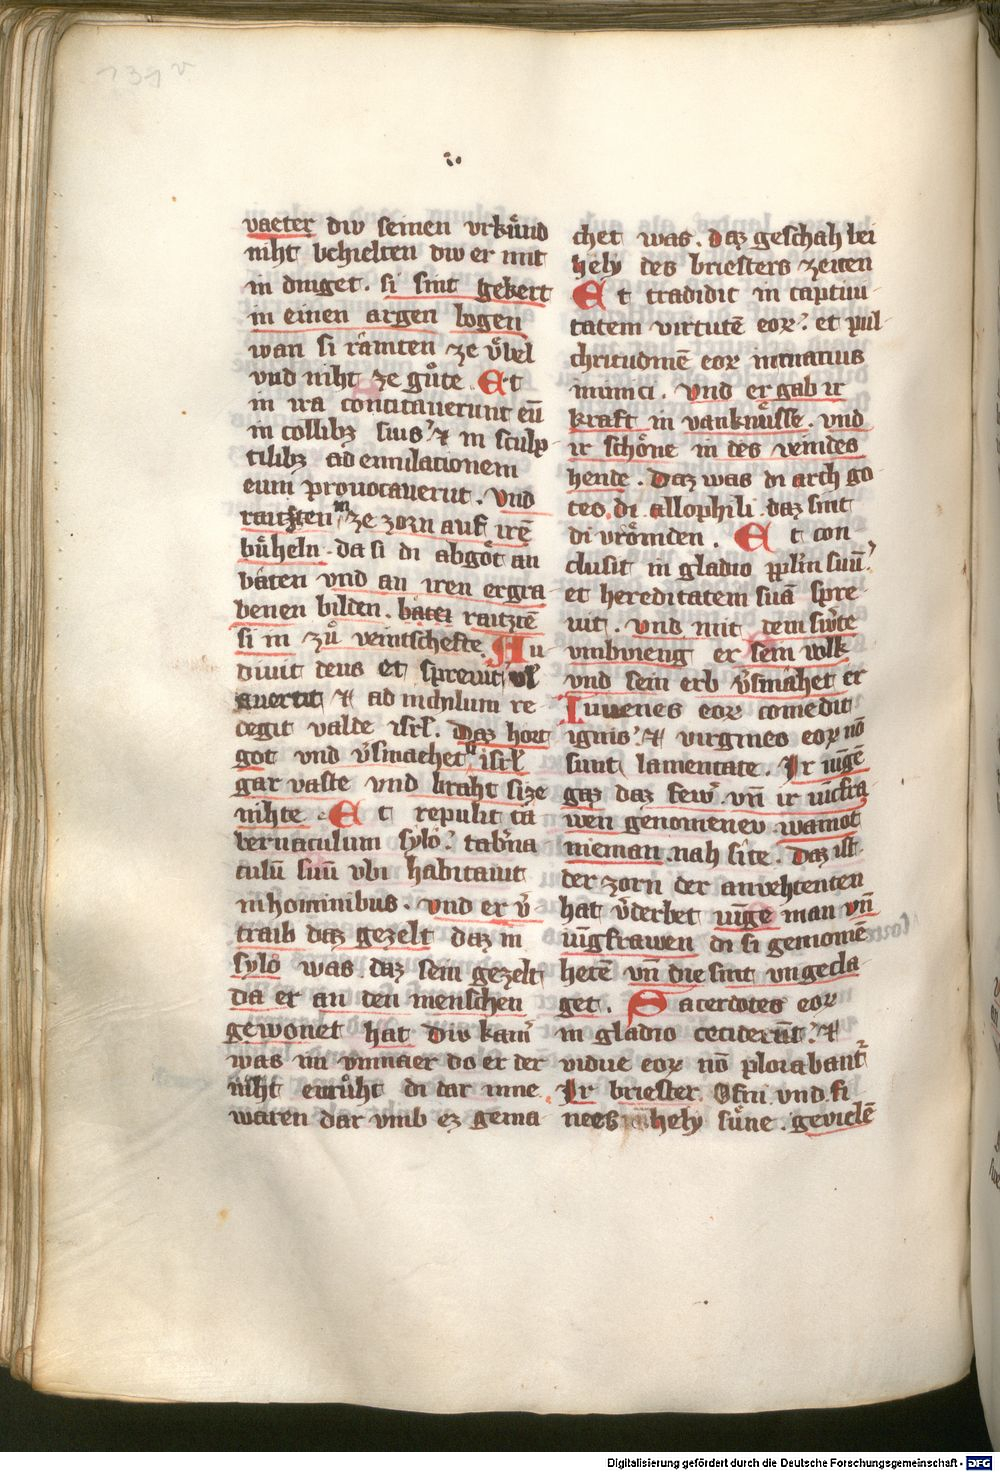 131 v
vaeter div seinen vrkünd
niht behielten div er mit
in dinget. si sint gekert
in einen argen bogen
wan si râmten ze v̊bel
vnd niht ze gůte. Et
in ira concitauerunt eū
in collibꝫ suis ⁊ in sculp
tilibꝫ ad emulationem
eum prouocauerūt. vnd
raitzten in ze zorn auf irē
bůheln. da si di abgôt an
bâten vnd an iren ergra
benen bilden. bâtei raitztē
si in zů veintschefte. Au
diuit deus et spreuit
auertit ⁊ ad nichilum re
degit valde isrl̄. Daz hort
got vnd v̄smachet isrl̄
gar vaste vnd braht si ze
nihte. Et repulit ta
bernaculum sylo tab̄na
culū suū vbi habitauit
in hominibus. vnd er v̄
traib daz gezelt daz in
sylo was daz sein gezelt
da er an den menschen
gewonet hat Div kam̄
was im vnmaer do er der
niht enrůht di dar inne
waren dar vmb ez gema
chet was. daz geschah bei
hely des briesters zeiten
Et tradidit in captiui
tatem virtutē eoꝝ et pul
chritudinē eoꝝ in manus
inimici. vnd er gab ir
kraft in vanknüsse. vnd
ir schône in des veindes
hende. Daz was di arch go
tes. di allophili daz sint
di vrômden. Et con
clusit in gladio pp̄lm suū
et hereditatem suā spre
uit. vnd mit dem sw̄te
vmbvieng er sein volk
vnd sein erb v̄smâhet er
Iuuenes eoꝝ comedit
ignis ⁊ virgines eoꝝ nō
sunt lamentate. Ir iūgē
gaz daz fewr̄. vn̄ ir iūcfra
wen genomenev wainot
nieman. nah site. Daz ist
der zorn der anvehtenten
hat v̄derbet iūge man vn̄
iūgfrawen di si genomē
hetē vn̄ die sint vngecla
get. Sacerdotes eoꝝ
in gladio ceciderūt ⁊
vidue eoꝝ nō plorabant̄
Ir briester. Ofni vnd fi
nees hely sůne. gevielē
Digitalisierung gefördert durch die Deutsche Forschungsgemeinschaft - DFG